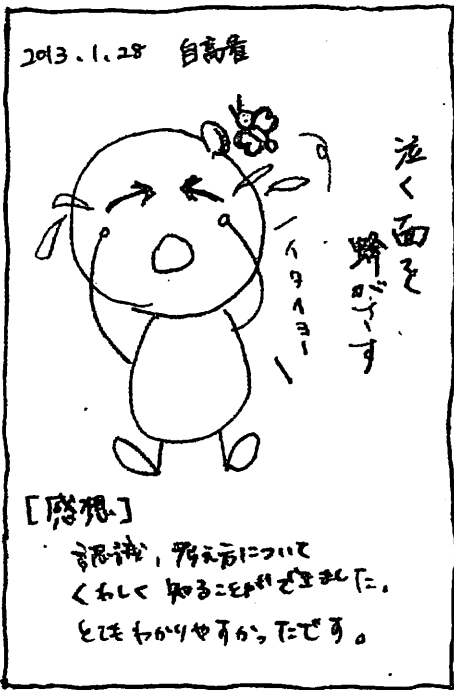 2013.1.28 自高看
泣く面を
蜂がさす
イタイヨー
[感想]
認識,考え方について
くわしく知ることができました。
とてもわかりやすかったです。